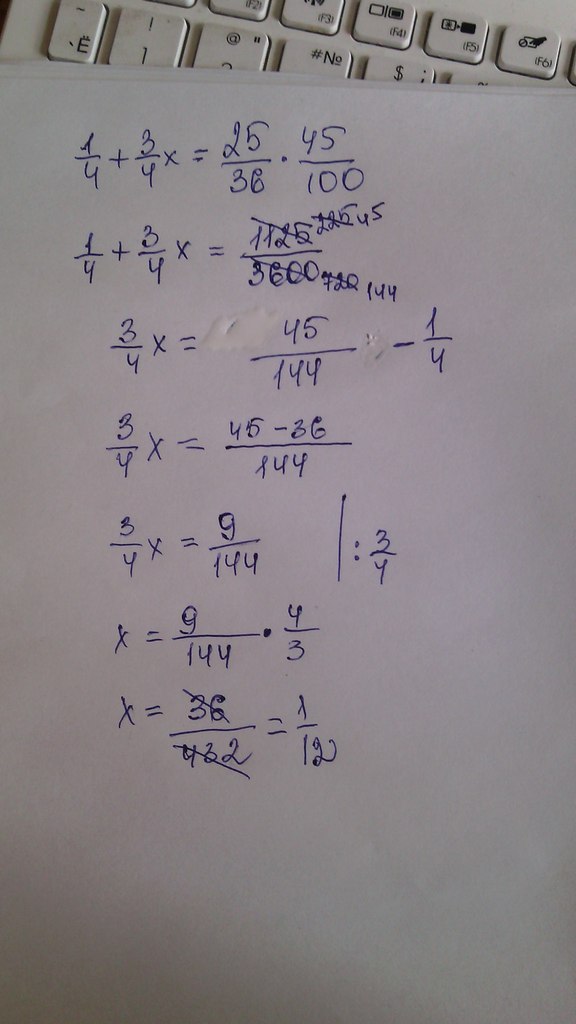 (F2) (F3) (F4) (F5) (F6)
Ё ! 1 @ " 2 #№ $ ;
1/4 + 3/4 x = 25/36 · 45/100
1/4 + 3/4 x = 1125/3600 225 45 720 144
3/4 x = 45/144 - 1/4
3/4 x = 45-36/144
3/4 x = 9/144 | : 3/4
x = 9/144 · 4/3
x = 36/432 = 1/12